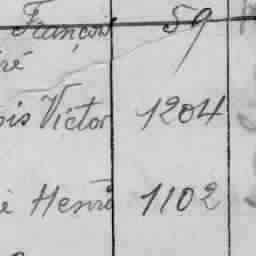 François 59
ré
ois Victor 1204
e Henri 1102